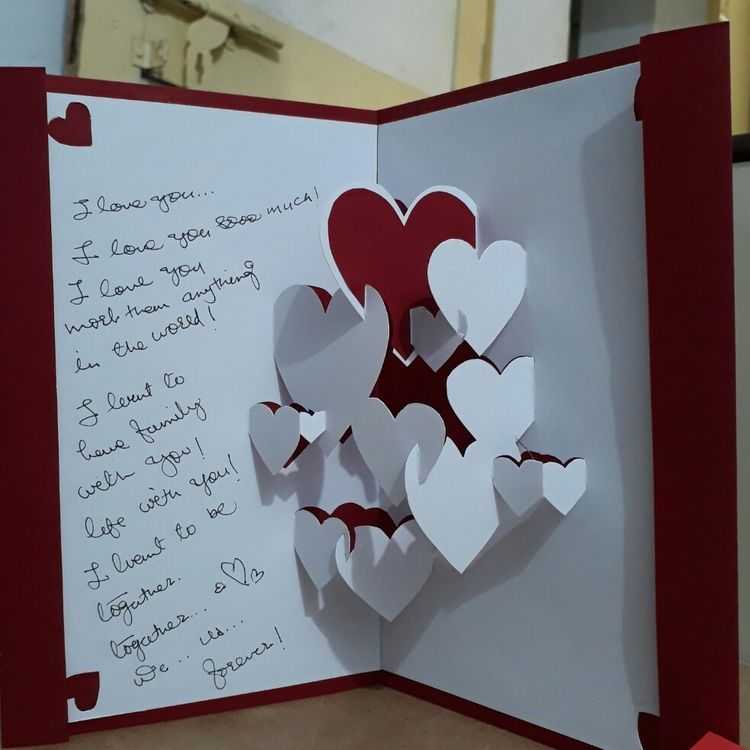 I love you...
I love you sooo much!
I love you
more them anything
in the world!
I want to
have family
with you!
life with you!
I want to be
together.
together...
we.. us...
forever!